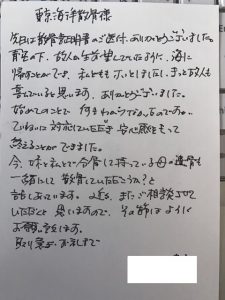 東京海洋散骨様
先日は散骨証明書のご送付、ありがとうございました。
青空の下、故人が生前望んでいたように、海に
帰すことができ、私どももホッとしました。きっと故人も
喜んでいると思います。ありがとうございました。
始めてのことで何もわからなかったのですが、
ていねいに対応していただき安心感をもって
終えることができました。
今、妹と私とで分骨して持っている母の遺骨も
一緒にして散骨していただこうか?と
話しあっています。近々、またご相談させて
いただこうと思いますので、その節はよろしく
お願い致します。
取り急ぎお礼まで